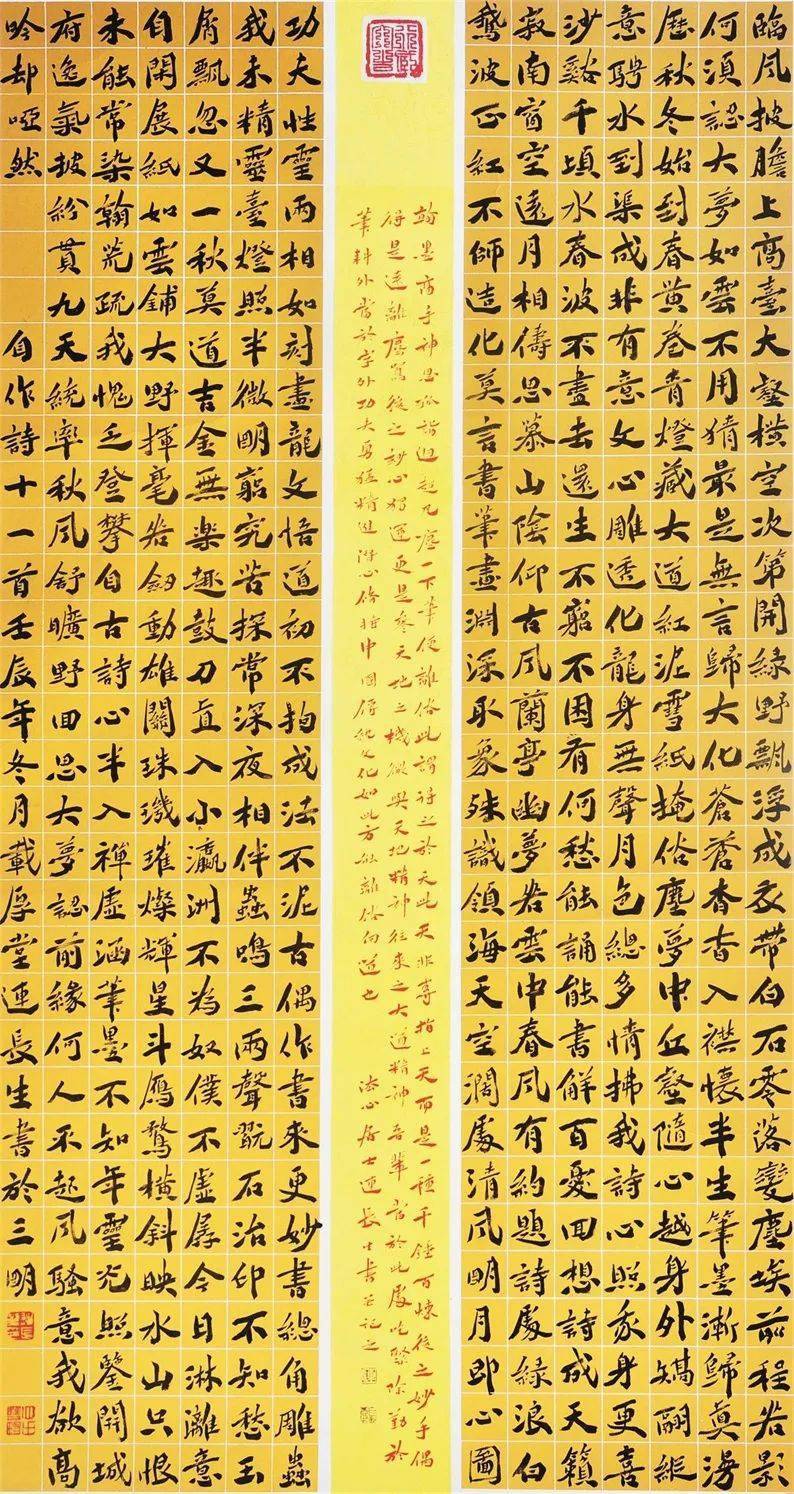 臨風披膽上高臺大壑橫空次第開綠野飄浮成衣帶白石零落變塵埃前程若影
何須認大夢如雲不用猜最是無言歸大化蒼蒼杳杳入襟懷半生筆墨漸歸真漫
歷秋冬始到春黃卷青燈藏大道紅泥雪紙掩俗塵夢中丘壑隨心越身外矯翩縱
意騁水到渠成非有意文心雕透化龍身無聲月色總多情拂我詩心照我身更喜
沙谿千頃水春波不盡去還生不窮不困有何愁能誦能書解百憂回想詩成天籟
寂南窗空遠月相儔思慕山陰仰古風蘭亭幽夢若雲中春風有約題詩處綠浪白
鵝波正紅不師造化莫言書筆畫淵深取象殊識領海天空濶處清風明月即心圖
翰墨高手神思孤詣迥超凡塵一下筆便離俗此謂得之於天此天非專指上天而是一種千錘百煉後之妙手偶
得是遠離塵後之妙心獨運更是參天地之機微與天地精神往來之大道精神吾輩當於此處吃緊除勤於
筆耕外當於字外功夫勇猛精進潛心修持中國傳統文化如此方能離俗向道也 法心居士連長生書並記之
功夫性靈兩相如刻畫龍文悟道初不拘成法不泥古偶作書來更妙書總角雕蟲
我未精靈臺燈照半微明窮究苦探常深夜相伴蟲鳴三兩聲翫石治印不知愁玉
屑飄忽又一秋莫道吉金無樂趣鼓刀直入小瀛洲不為奴僕不虛孱今日淋漓意
自閑展紙如雲鋪大野揮毫若劍動雄關珠璣璀燦輝星斗鴈鶩橫斜映水山只恨
未能常染翰荒疏我愧乏登攀自古詩心半入禪虛涵筆墨不知年靈光照鑒開城
府逸氣披紛貫九天統率秋風舒曠野回思大夢認前緣何人不起風騷意我欲高
吟却啞然 自作詩十一首壬辰年冬月載厚堂連長生書於三明